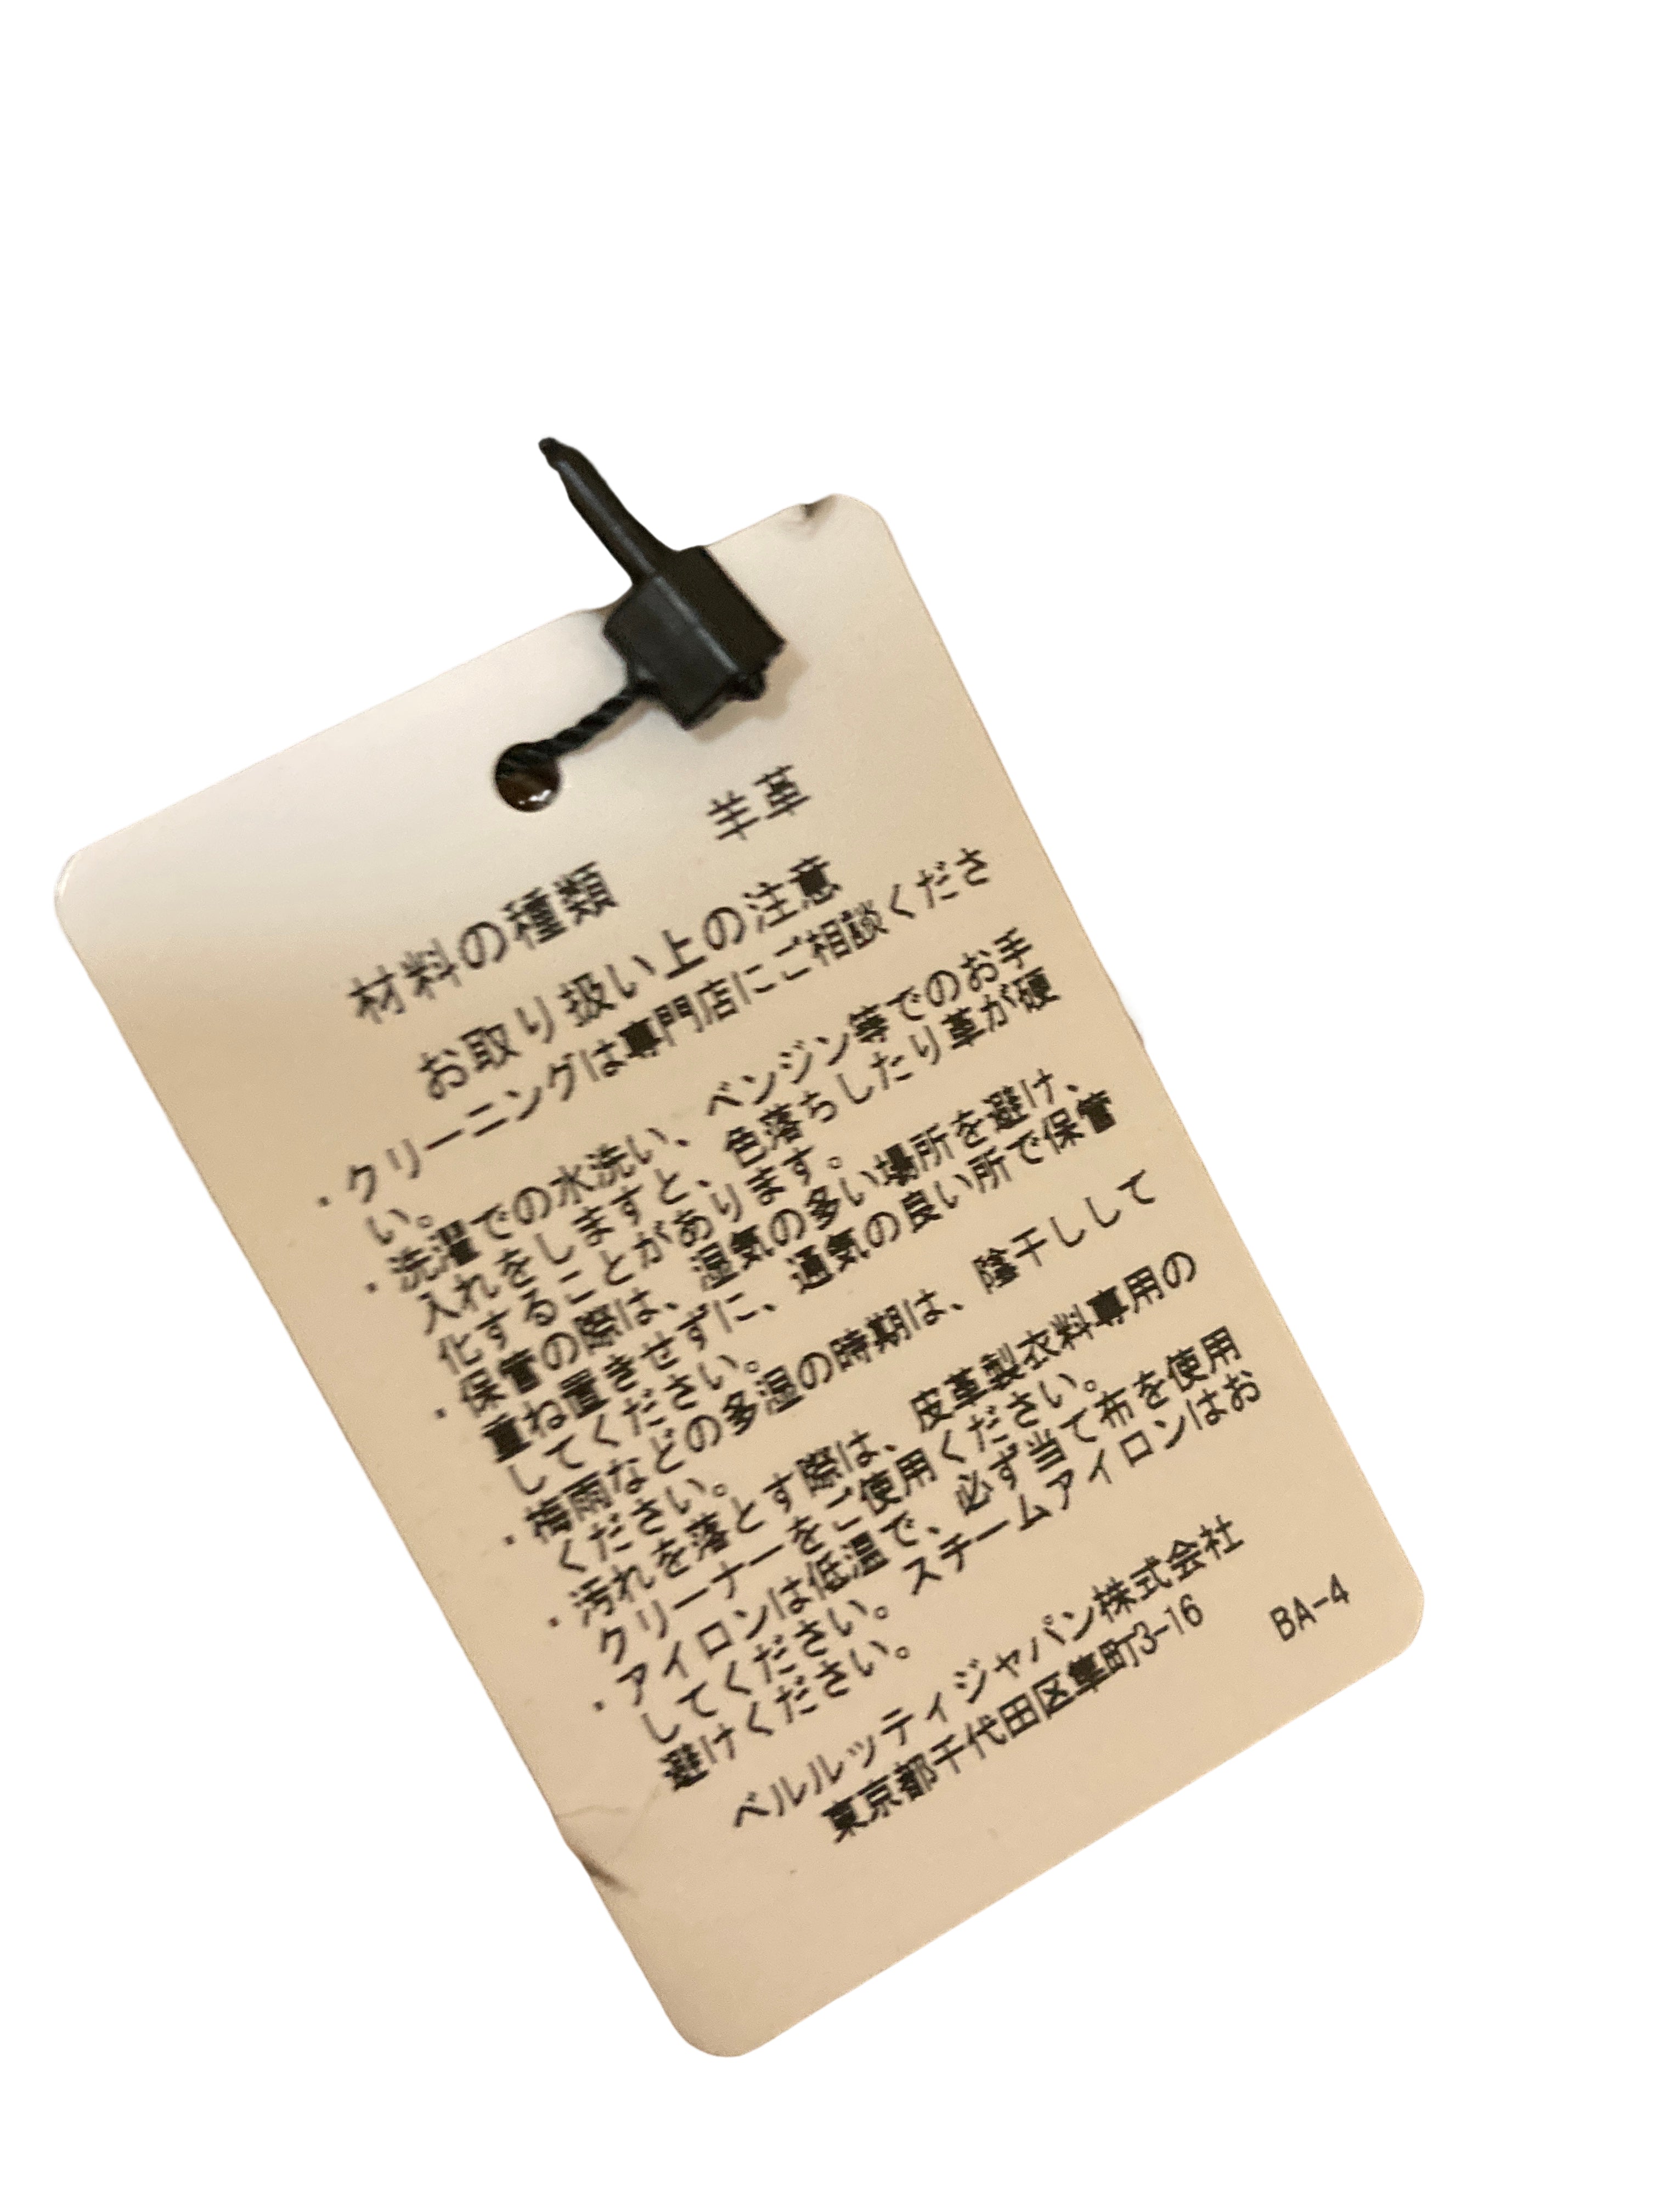 材料の種類　　羊革
お取り扱い上の注意
・クリーニングは専門店にご相談くださ
い。
・洗濯での水洗い、ベンジン等でのお手
入れをしますと、色落ちしたり革が硬
化することがあります。
・保管の際は、湿気の多い場所を避け、
重ね置きせずに、通気の良い所で保管
してください。
・梅雨などの多湿の時期は、陰干しして
ください。
・汚れを落とす際は、皮革製衣料専用の
クリーナーをご使用ください。
・アイロンは低温で、必ず当て布を使用
してください。スチームアイロンはお
避けください。
ベルルッティジャパン株式会社
東京都千代田区隼町3-16
BA-4